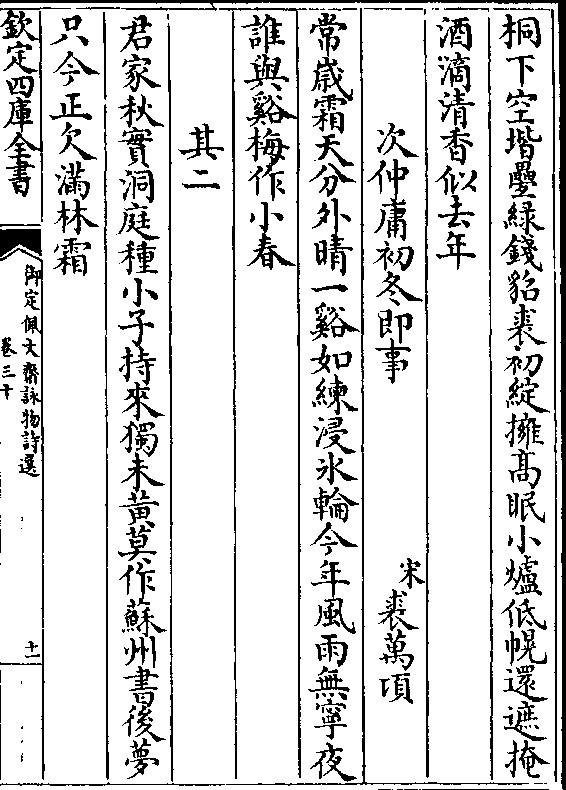 桐下空堦疊緑錢貂裘初綻擁高眠小爐低幌還遮掩
酒滴清香似去年
次仲庸初冬即事
宋
裘萬頃
常嵗霜天分外晴一谿如練浸氷輪今年風雨無寧夜
誰與谿梅作小春
其二
君家秋實洞庭種小子持來獨未黄莫作蘇州書後夢
只今正欠滿林霜
欽定四庫全書
御定佩文齋詠物詩選
卷三十
十一